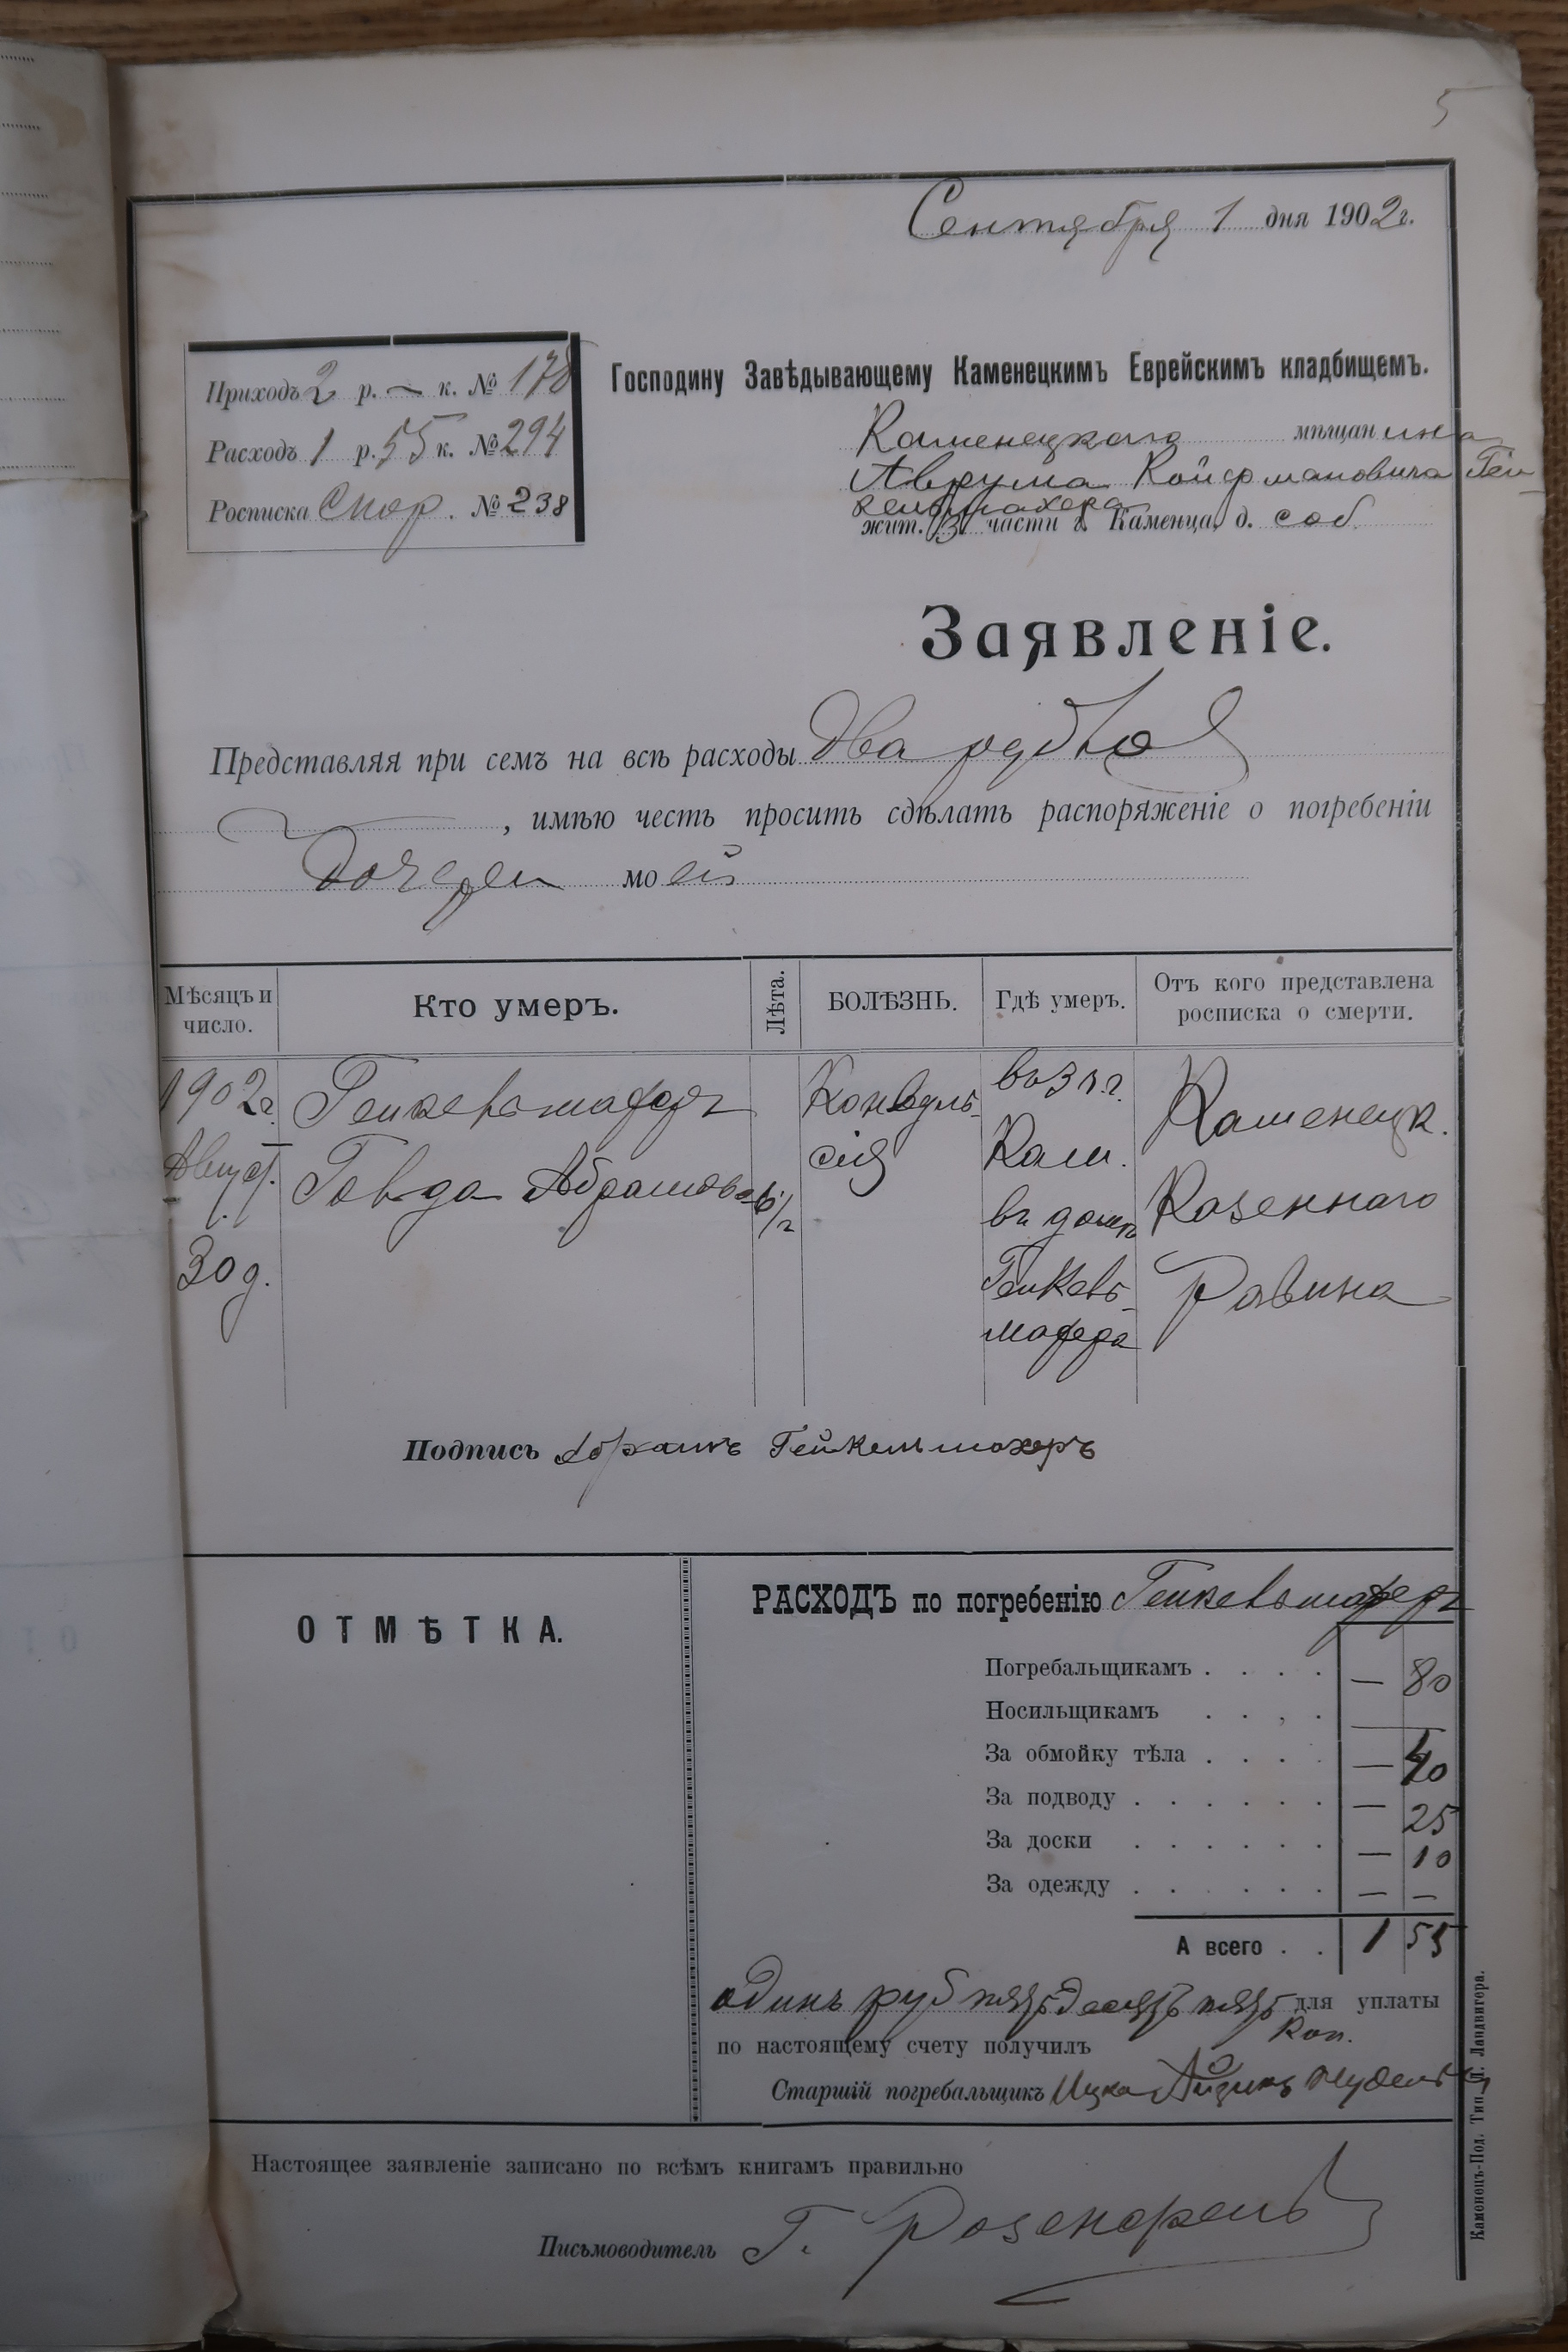 5
Сентября 1 дня 1902 г.
Приходъ 2 р. — к. № 178
Расходъ 1 р. 55 к. № 294
Росписка № 238
Господину Завѣдывающему Каменецкимъ Еврейскимъ кладбищемъ.
Каменецкаго мѣщанина
Аврума Койфмановича Гей-
кельмахера
жит. 3 части г. Каменца, д. соб.
Заявленіе.
Представляя при семъ на всѣ расходы два рубля
, имѣю честь просить сдѣлать распоряженіе о погребеніи
дочери моей
Мѣсяцъ и число. Кто умеръ. Лѣта. БОЛѢЗНЬ. Гдѣ умеръ. Отъ кого представлена росписка о смерти.
1902 г. Конвуль- Каменецк.
Август. Абрамова сія Кам. Казеннаго
30 д. въ домѣ Равина
Подпись Абрамъ Гейкельмахеръ
ОТМѢТКА.
РАСХОДЪ по погребенію
Погребальщикамъ . . . . — 80
Носильщикамъ . . . . —
За обмойку тѣла . . . . — 40
За подводу . . . . . — 25
За доски . . . . . — 10
За одежду . . . . . — —
А всего . . 1 55
одинъ руб пятьдесятъ пять для уплаты
коп.
по настоящему счету получилъ
Старшій погребальщикъ Ицко Айзикъ
Настоящее заявленіе записано по всѣмъ книгамъ правильно
Письмоводитель Г.
Каменецъ-Под. Тип. Ландвигера.